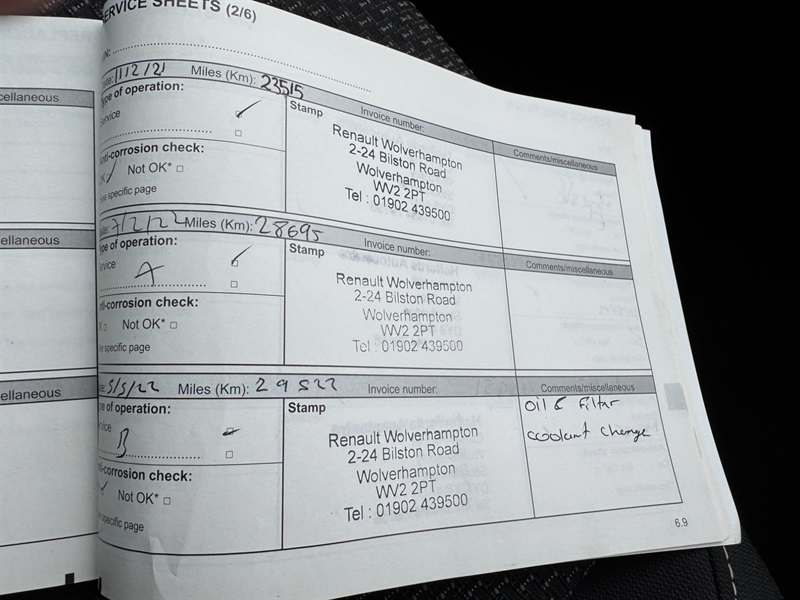 SERVICE SHEETS (2/6)
cellaneous
Miles (Km): 23515
Type of operation:
Service
Stamp
Invoice number:
Comments/miscellaneous
Renault Wolverhampton
2-24 Bilston Road
Wolverhampton
WV2 2PT
Tel : 01902 439500
Anti-corrosion check:
OK Not OK*
See specific page
ellaneous
7/2/22 Miles (Km): 28695
Type of operation:
Service
A
Stamp
Invoice number:
Comments/miscellaneous
Renault Wolverhampton
2-24 Bilston Road
Wolverhampton
WV2 2PT
Tel : 01902 439500
Anti-corrosion check:
Not OK*
See specific page
ellaneous
5/5/22 Miles (Km): 29522
Type of operation:
Service
B
Stamp
Invoice number:
Comments/miscellaneous
Oil & Filtar
coolant change
Renault Wolverhampton
2-24 Bilston Road
Wolverhampton
WV2 2PT
Tel : 01902 439500
Anti-corrosion check:
Not OK*
See specific page
6.9